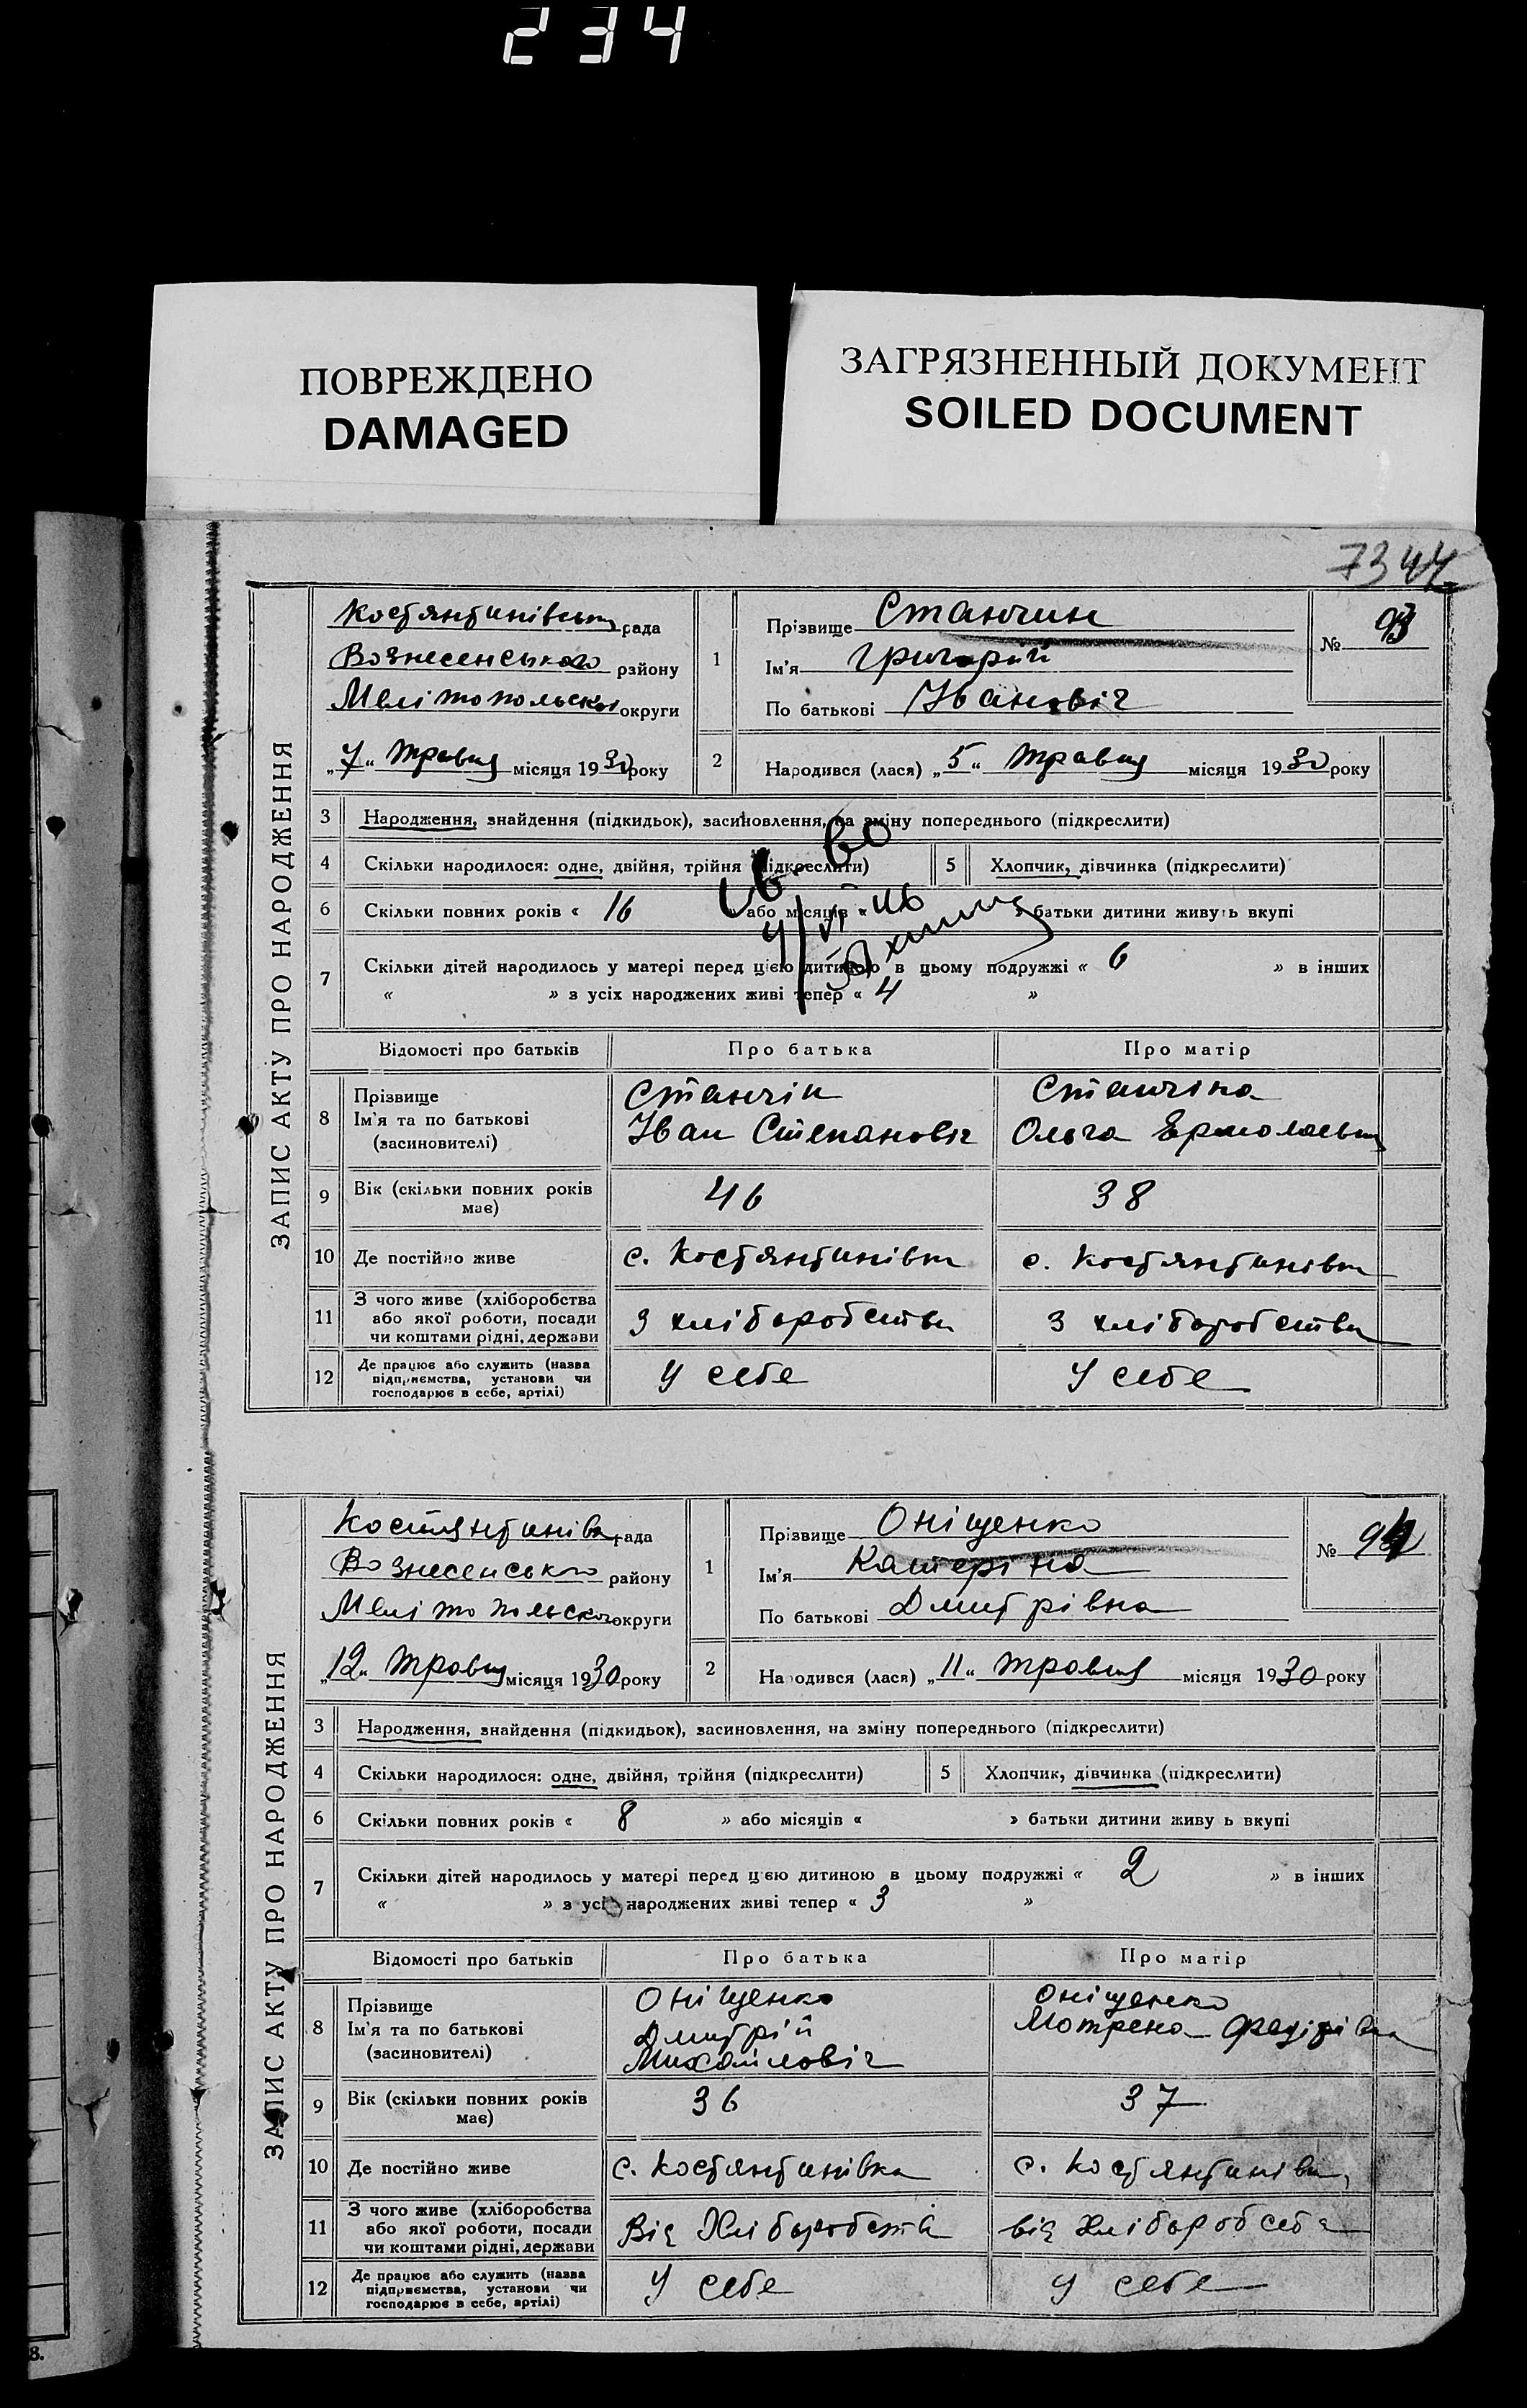 234
ПОВРЕЖДЕНО
DAMAGED
ЗАГРЯЗНЕННЫЙ ДОКУМЕНТ
SOILED DOCUMENT
7344
ЗАПИС АКТУ ПРО НАРОДЖЕННЯ
Костянтинівська рада
Вознесенського району
Мелітопольскої округи
„7“ Травня місяця 1930 року
1
Прізвище Станчин
Ім'я Григорій
По батькові Івановіч
№ 93
2 Народився (лася) „5“ Травня місяця 1930 року
3 Народження, знайдення (підкидьок), засиновлення, на зміну попереднього (підкреслити)
4 Скільки народилося: одне, двійня, трійня (підкреслити) 5 Хлопчик, дівчинка (підкреслити)
6 Скільки повних років « 16 » або місяців « » батьки дитини живуть вкупі
7 Скільки дітей народилось у матері перед цією дитиною в цьому подружжі « 6 » в інших
« » з усіх народжених живі тепер « 4 »
Відомості про батьків Про батька Про матір
8 Прізвище Ім'я та по батькові (засиновителі)
Станчін Станчіна
Іван Степановіч Ольга Ермолаевна
9 Вік (скільки повних років має) 46 38
10 Де постійно живе с. Костянтинівка с. Костянтинівка
11 З чого живе (хліборобства або якої роботи, посади чи коштами рідні, держави З хліборобства З хліборобства
12 Де працює або служить (назва підприємства, установи чи господарює в себе, артілі) У себе У себе
ЗАПИС АКТУ ПРО НАРОДЖЕННЯ
Костянтинівка рада
Вознесенського району
Мелітопольского округи
„12“ Травня місяця 1930 року
1
Прізвище Оніщенко
Ім'я Катеріна
По батькові Дмитрівна
№ 94
2 Народився (лася) „11“ Травня місяця 1930 року
3 Народження, знайдення (підкидьок), засиновлення, на зміну попереднього (підкреслити)
4 Скільки народилося: одне, двійня, трійня (підкреслити) 5 Хлопчик, дівчинка (підкреслити)
6 Скільки повних років « 8 » або місяців « » батьки дитини живу ь вкупі
7 Скільки дітей народилось у матері перед цією дитиною в цьому подружжі « 2 » в інших
« » з усіх народжених живі тепер « 3 »
Відомості про батьків Про батька Про матір
8 Прізвище Ім'я та по батькові (засиновителі)
Оніщенко Оніщенко
Дмитрій Мотрена Федірівна
Михайловіч
9 Вік (скільки повних років має) 36 37
10 Де постійно живе с. Костянтинівка с. Костянтинівка
11 З чого живе (хліборобства або якої роботи, посади чи коштами рідні, держави Від Хліборобств від Хліборобства
12 Де працює або служить (назва підприємства, установи чи господарює в себе, артілі) У себе У себе
8.